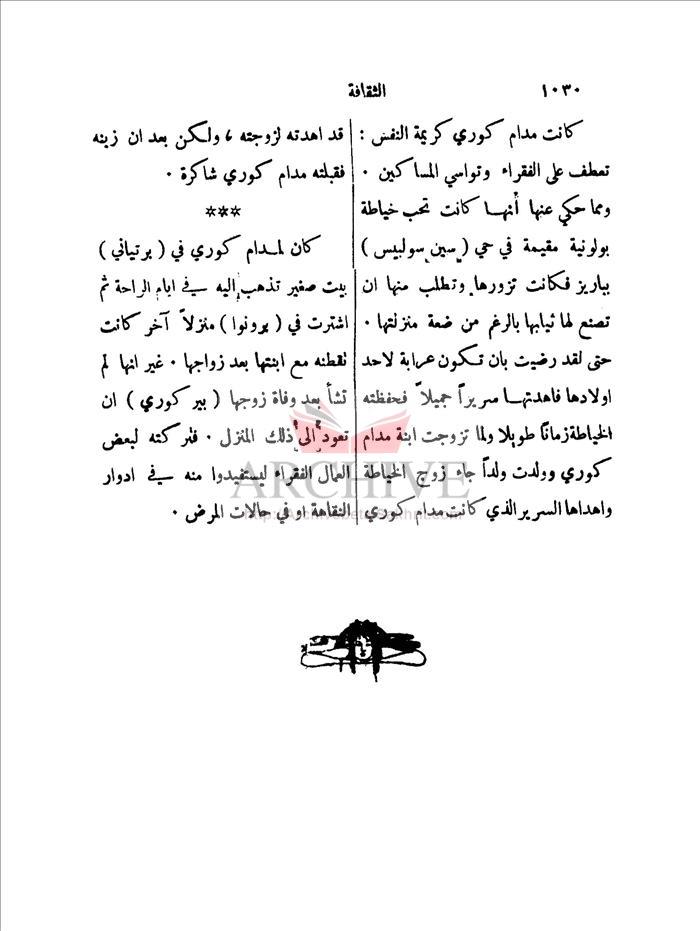 ١٠٣٠
الثقافة
كانت مدام كوري كريمة النفس :
تعطف على الفقراء وتواسي المساكين .
ومما حكي عنها أنها كانت تحب خياطة
بولونية مقيمة في حي ( سين سولبيس )
بباريز فكانت تزورها وتطلب منها ان
تصنع لها ثيابها بالرغم من ضعة منزلتها .
حتى لقد رضيت بان تكون عرابة لاحد
اولادها فاهدتها سريراً جميلاً فحفظته
الخياطة زمانًا طويلا ولما تزوجت ابنة مدام
كوري وولدت ولداً جاء زوج الخياطة
واهداها السرير الذي كانت مدام كوري
قد اهدته لزوجته ، ولكن بعد ان زينه
فقبلته مدام كوري شاكرة .
***
كان لمدام كوري في ( برتياني )
بيت صغير تذهب إليه في ايام الراحة ثم
اشترت في ( برونوا ) منزلاً آخر كانت
تقطنه مع ابنتها بعد زواجها . غير انها لم
تشأ بعد وفاة زوجها ( بير كوري ) ان
تعود إلى ذلك المنزل . فتركته لبعض
العمال الفقراء ليستفيدوا منه في ادوار
النقاهة او في حالات المرض .
ARCHIVE